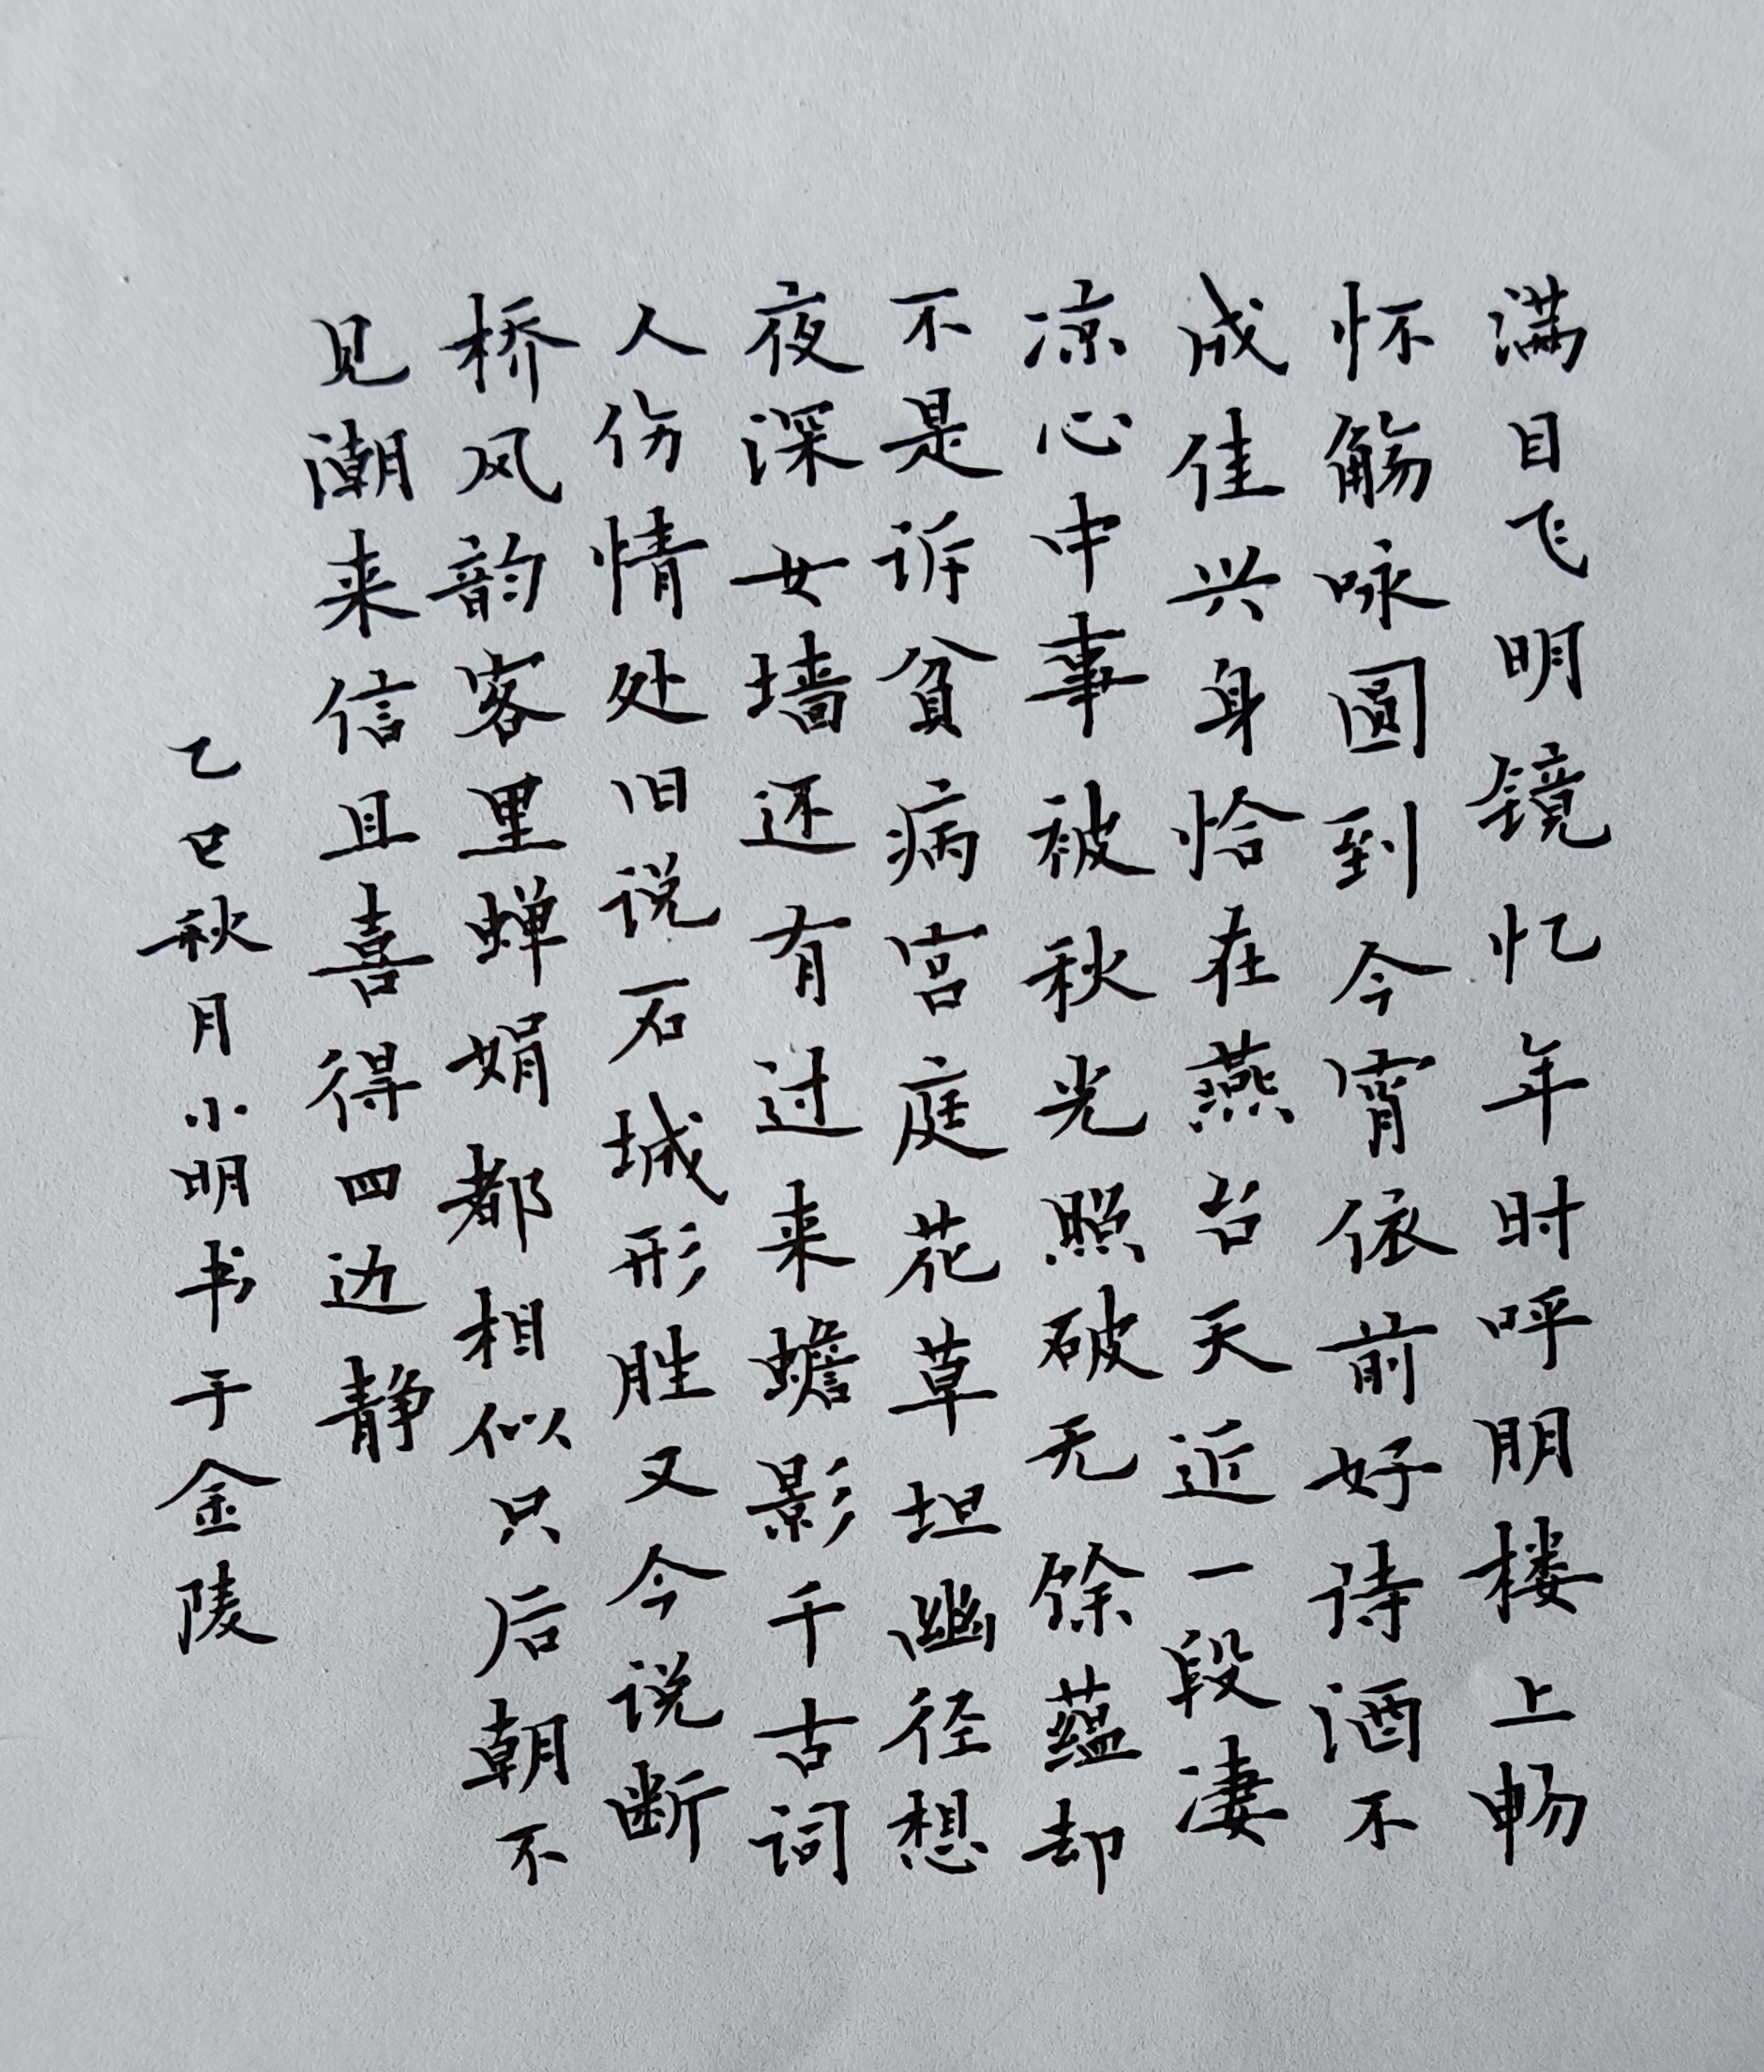 满目飞明镜忆年时呼朋楼上畅
怀觞咏圆到今宵依前好诗酒不
成佳兴身恰在燕台天近一段凄
凉心中事被秋光照破无馀蕴却
不是诉贫病宫庭花草埋幽径想
夜深女墙还有过来蟾影千古词
人伤情处旧说石城形胜又今说断
桥风韵客里蝉娟都相似只后朝不
见潮来信且喜得四边静
乙巳秋月小明书于金陵